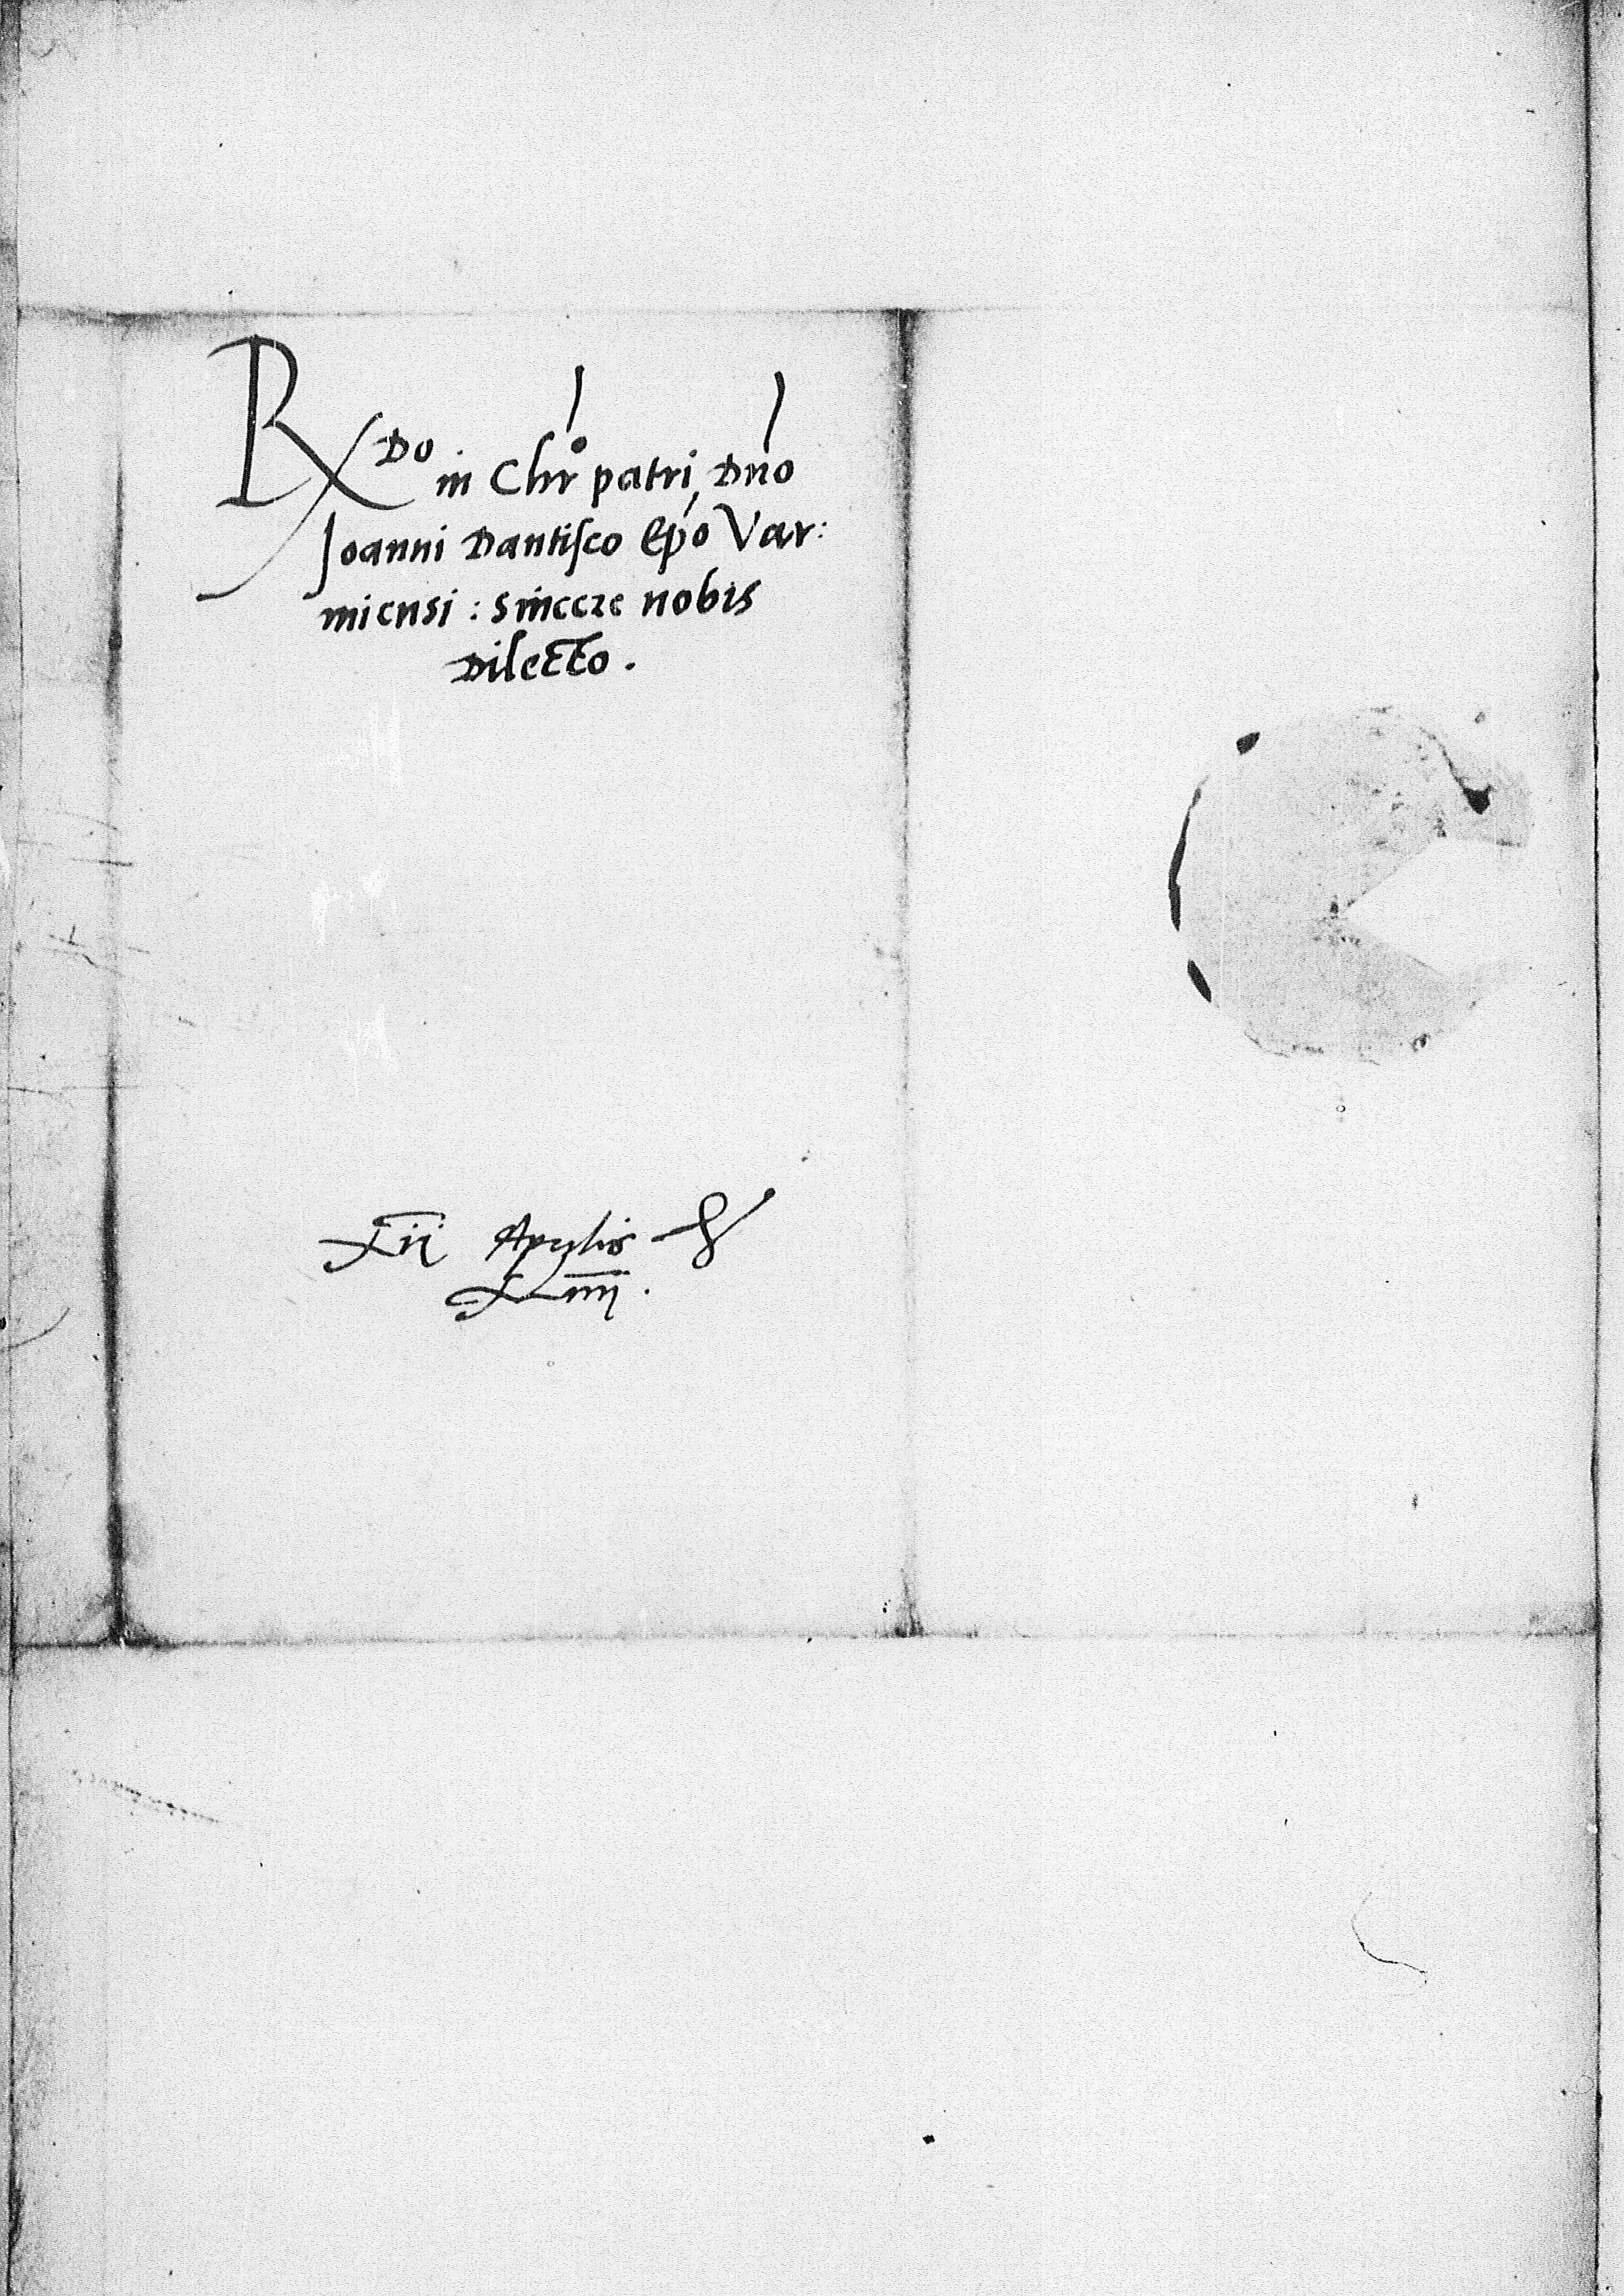 R<sup>do</sup> in Chr̅o patri, Dn̅o
Joanni Dantisco Ep̅o Var:
miensi: sincere nobis
Dilecto.
XII Aprilis
XLIIII.